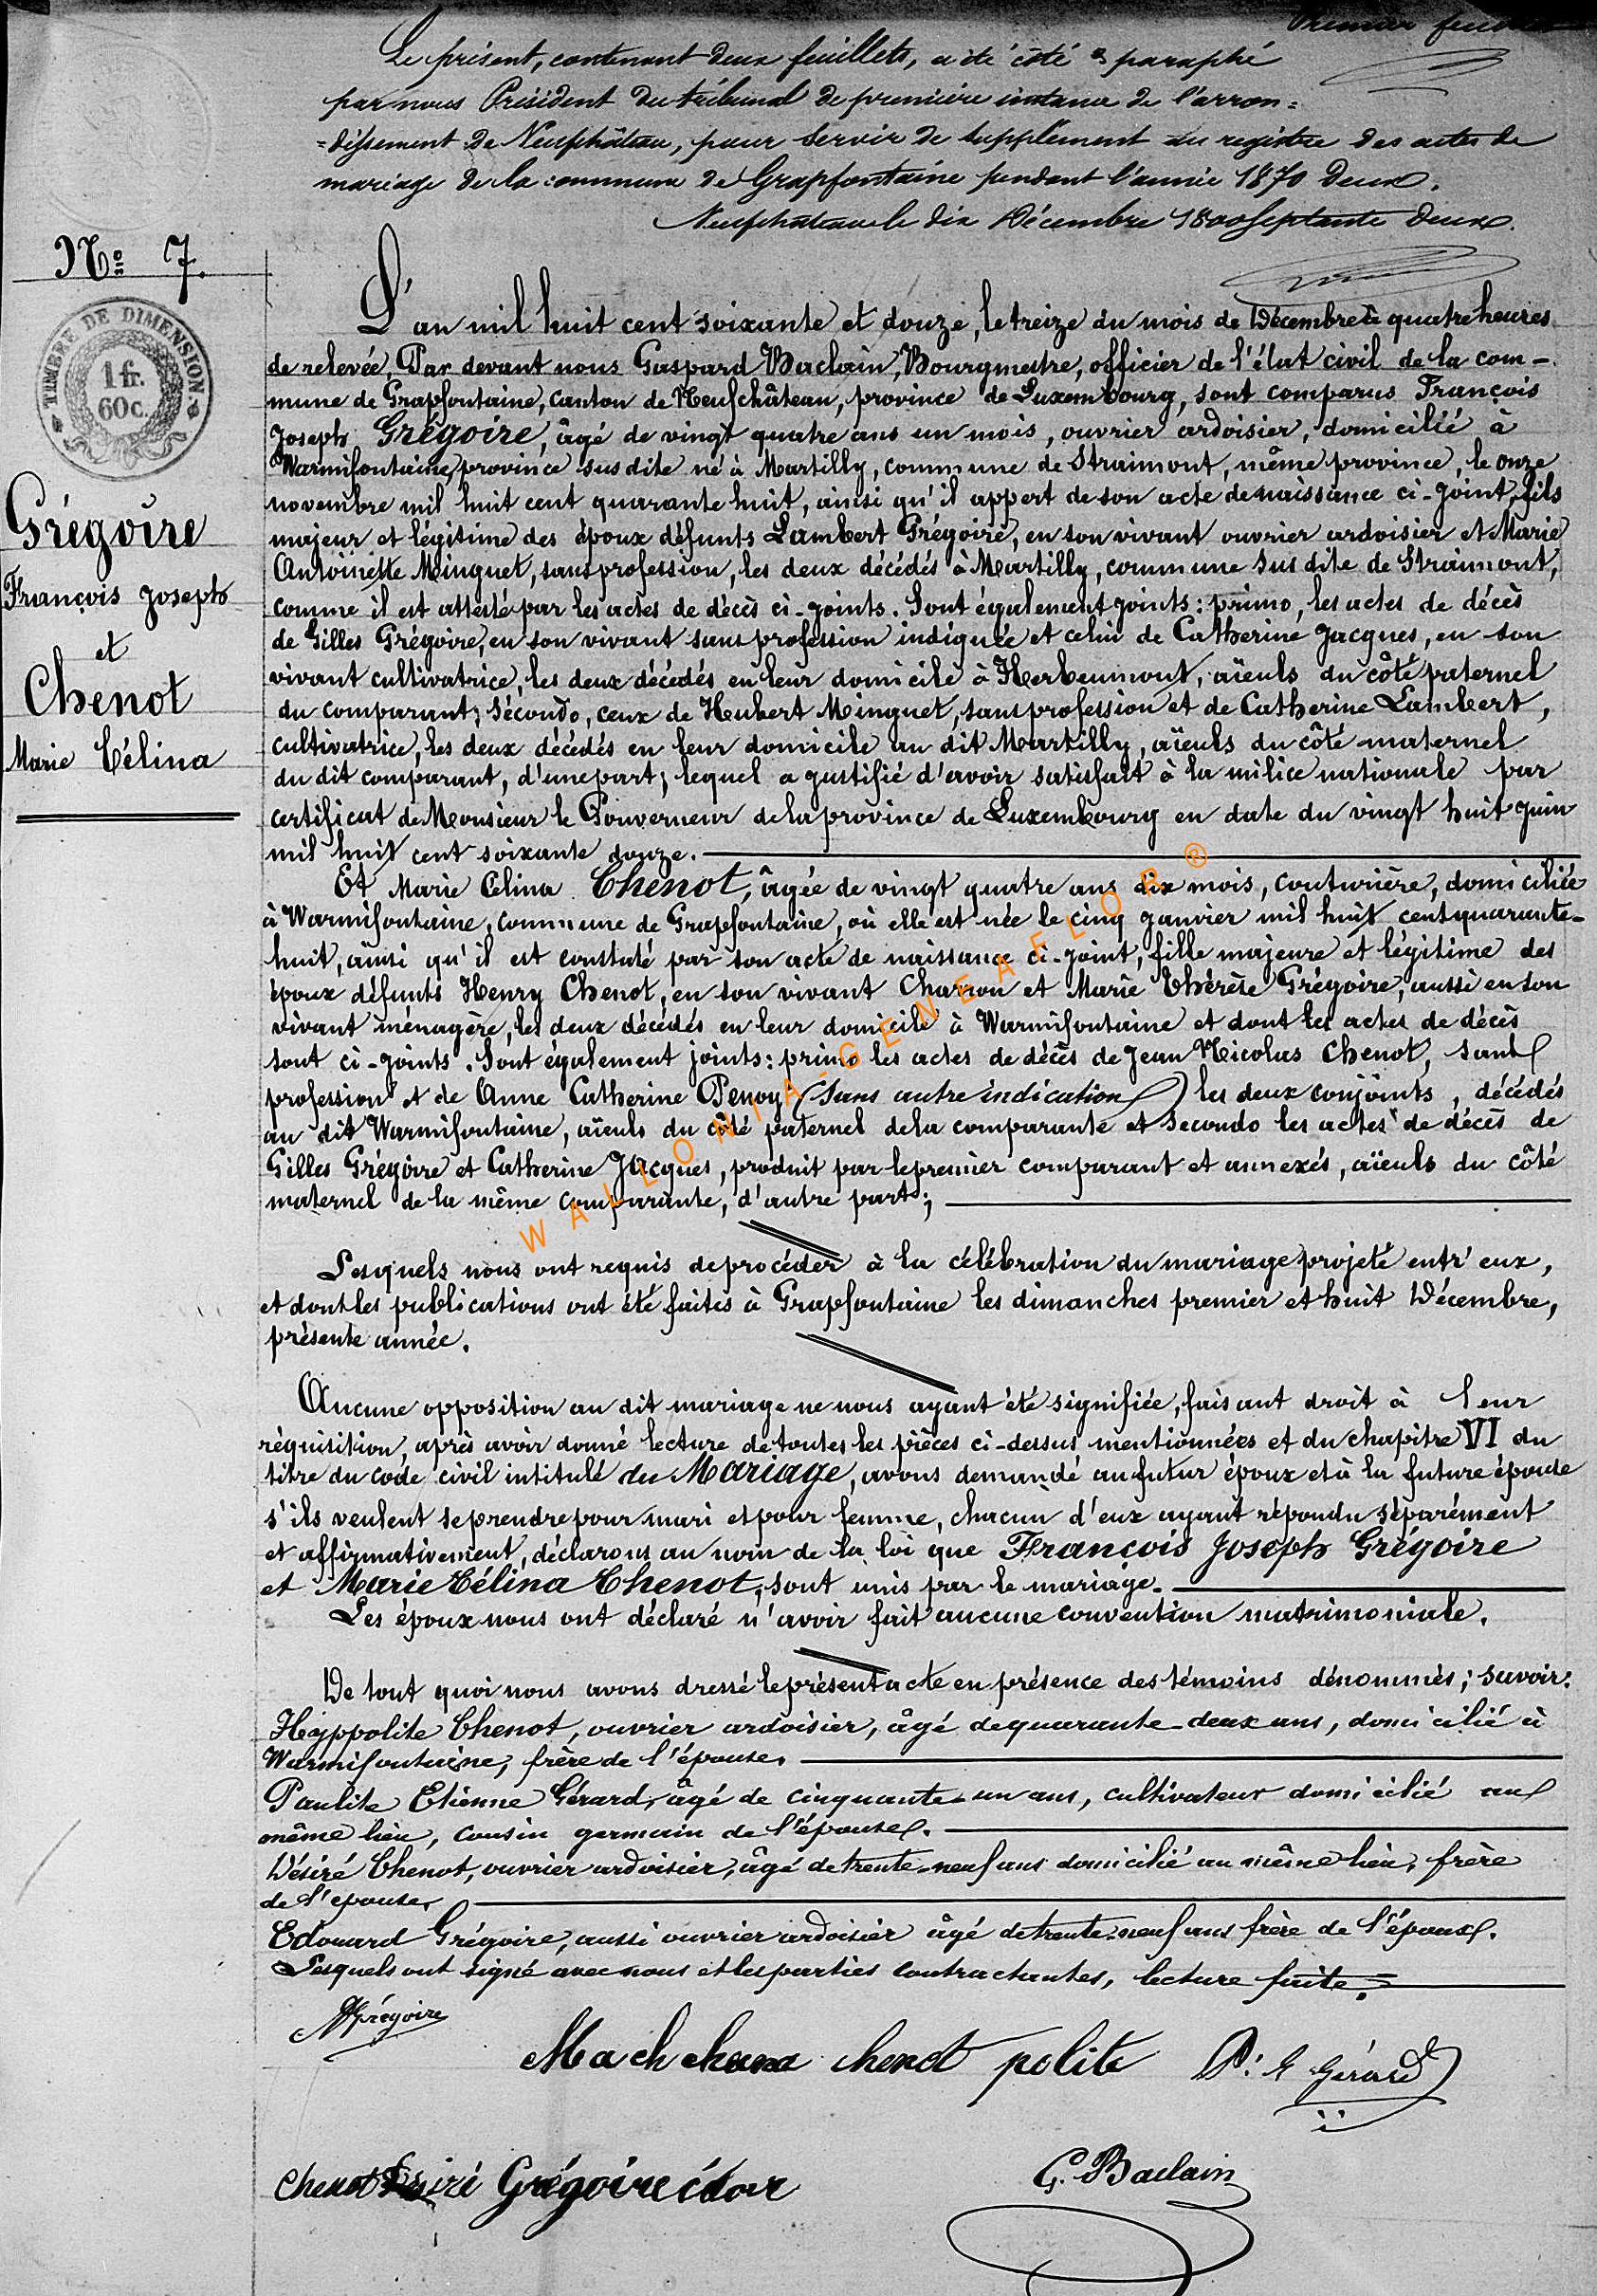 Premier feuillet
Le présent, contenant deux feuillets, a été coté & paraphé
par nous Président du tribunal de première instance de l'arron=
=dissement de Neufchâteau, pour servir de supplément au registre des actes de
mariage de la commune de Grapfontaine pendant l'année 1870 deux.
Neufchâteau le dix Décembre 1800 septante deux.
No 7.
TIMBRE DE DIMENSION.
1 fr.
60c.
Grégoire
François Joseph
et
Chenot
Marie Célina
L'an mil huit cent soixante et douze, le treize du mois de Décembre à quatre heures
de relevée, Par devant nous Gaspard Baclain, Bourgmestre, officier de l'état civil de la com-
mune de Grapfontaine, canton de Neufchâteau, province de Luxembourg, sont comparus François
Joseph Grégoire, âgé de vingt quatre ans un mois, ouvrier ardoisier, domicilié à
Warmifontaine, province susdite né à Martilly, commune de Straimont, même province, le onze
novembre mil huit cent quarante huit, ainsi qu'il appert de son acte de naissance ci-joint, fils
majeur et légitime des époux défunts Lambert Grégoire, en son vivant ouvrier ardoisier et Marie
Antoinette Minguet, sans profession, les deux décédés à Martilly, commune sus dite de Straimont,
comme il est attesté par les actes de décès ci-joints. Sont également joints: primo, les actes de décès
de Gilles Grégoire, en son vivant sans profession indiquée et celui de Catherine Jacques, en son
vivant cultivatrice, les deux décédés en leur domicile à Herbeumont, aïeuls du côté paternel
du comparant; sécondo, ceux de Hubert Minguet, sans profession et de Catherine Lambert,
cultivatrice, les deux décédés en leur domicile au dit Martilly, aïeuls du côté maternel
du dit comparant, d'une part; lequel a justifié d'avoir satisfait à la milice nationale par
certificat de Monsieur le Gouverneur de la province de Luxembourg en date du vingt huit juin
mil huit cent soixante douze.
Et Marie Célina Chenot, âgée de vingt quatre ans dix mois, couturière, domiciliée
à Warmifontaine, commune de Grapfontaine, où elle est née le cinq janvier mil huit cent quarante-
huit, ainsi qu'il est constaté par son acte de naissance ci-joint, fille majeure et légitime des
époux défunts Henry Chenot, en son vivant Charron et Marie Thérèse Grégoire, aussi en son
vivant ménagère, les deux décédés en leur domicile à Warmifontaine et dont les actes de décès
sont ci-joints. Sont également joints: primo les actes de décès de Jean Nicolas Chenot, sans
profession et de Anne Catherine Penoy (sans autre indication) les deux conjoints, décédés
au dit Warmifontaine, aïeuls du côté paternel de la comparante et secondo les actes de décès de
Gilles Grégoire et Catherine Jacques, produit par le premier comparant et annexés, aïeuls du côté
maternel de la même comparante, d'autre part;
Lesquels nous ont requis de procéder à la célébration du mariage projeté entr'eux,
et dont les publications ont été faites à Grapfontaine les dimanches premier et huit Décembre,
présente année.
Aucune opposition au dit mariage ne nous ayant été signifiée, faisant droit à leur
réquisition, après avoir donné lecture de toutes les pièces ci-dessus mentionnées et du chapitre VI du
titre du code civil intitulé du Mariage, avons demandé au futur époux et à la future épouse
s'ils veulent se prendre pour mari et pour femme, chacun d'eux ayant répondu séparément
et affirmativement, déclarons au nom de la loi que François Joseph Grégoire
et Marie Célina Chenot, sont unis par le mariage.
Les époux nous ont déclaré n'avoir fait aucune convention matrimoniale.
De tout quoi nous avons dressé le présent acte en présence des témoins dénommés; savoir:
Hyppolite Chenot, ouvrier ardoisier, âgé de quarante-deux ans, domicilié à
Warmifontaine, frère de l'épouse.
Paulite Etienne Gérard, âgé de cinquante-un ans, cultivateur domicilié au
même lieu, cousin germain de l'épouse.
Désiré Chenot, ouvrier ardoisier, âgé de trente-neuf ans domicilié au même lieu, frère
de l'epouse.
Edouard Grégoire, aussi ouvrier ardoisier âgé de trente-neuf ans frère de l'époux.
Lesquels ont signé avec nous et les parties contractantes, lecture faite.
Grégoire
chenot polite P: E Gérard
Chenot Désiré Grégoire édor
G. Baclain
WALLONIA-GENEAFLOR®